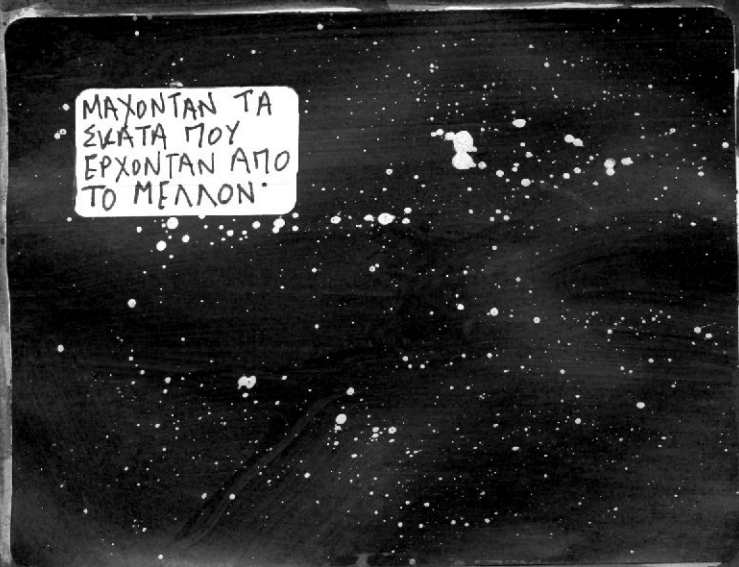 ΜΑΧΟΝΤΑΝ ΤΑ
ΣΚΑΤΑ ΠΟΥ
ΕΡΧΟΝΤΑΝ ΑΠΟ
ΤΟ ΜΕΛΛΟΝ·